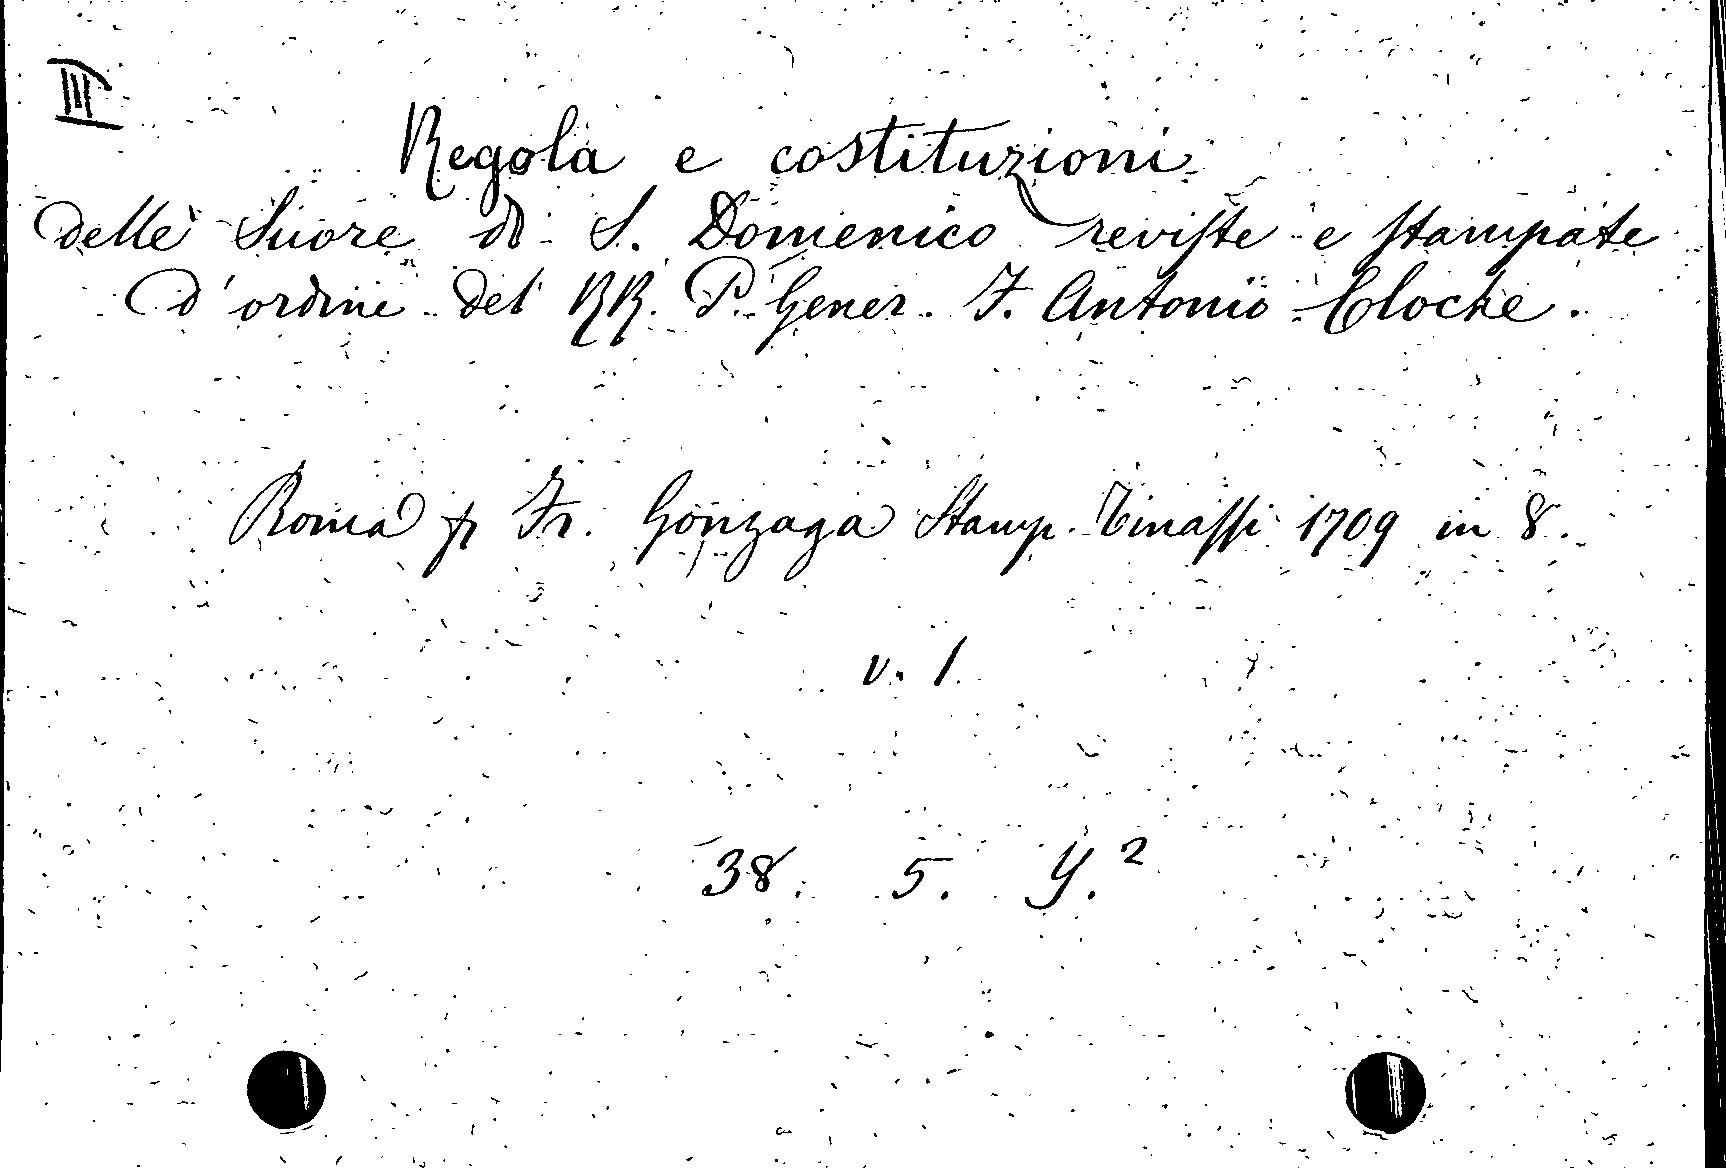 III
Regola e costituzioni
delle Suore di S. Domenico reviste e stampate
d'ordine del RR. P. Gener. F. Antonio Cloche.
Roma p Fr. Gonzaga Stamp. Tinassi 1709 in 8.
v. 1.
38. 5. Y.²